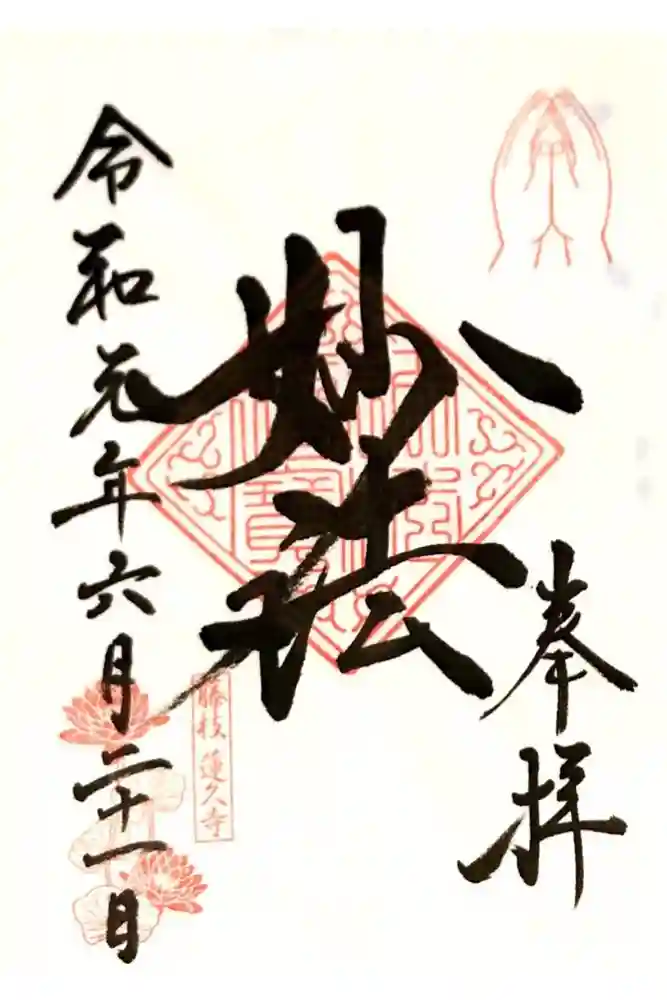 奉拝
妙法
藤枝 蓮久寺
令和元年六月二十一日